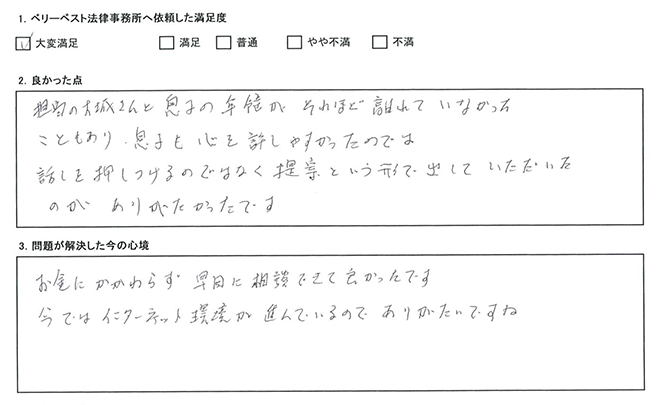 1. ベリーベスト法律事務所へ依頼した満足度
大変満足 満足 普通 やや不満 不満
2. 良かった点
担当の大城さんと息子の年齢が それほど離れていなかった
こともあり、息子も心を許しやすかったのでは
話しを押しつけるのではなく提案という形で出していただいた
のが ありがたかったです
3. 問題が解決した今の心境
お金にかかわらず 早日に相談できて良かったです
今では インターネット環境が進んでいるので ありがたいですね